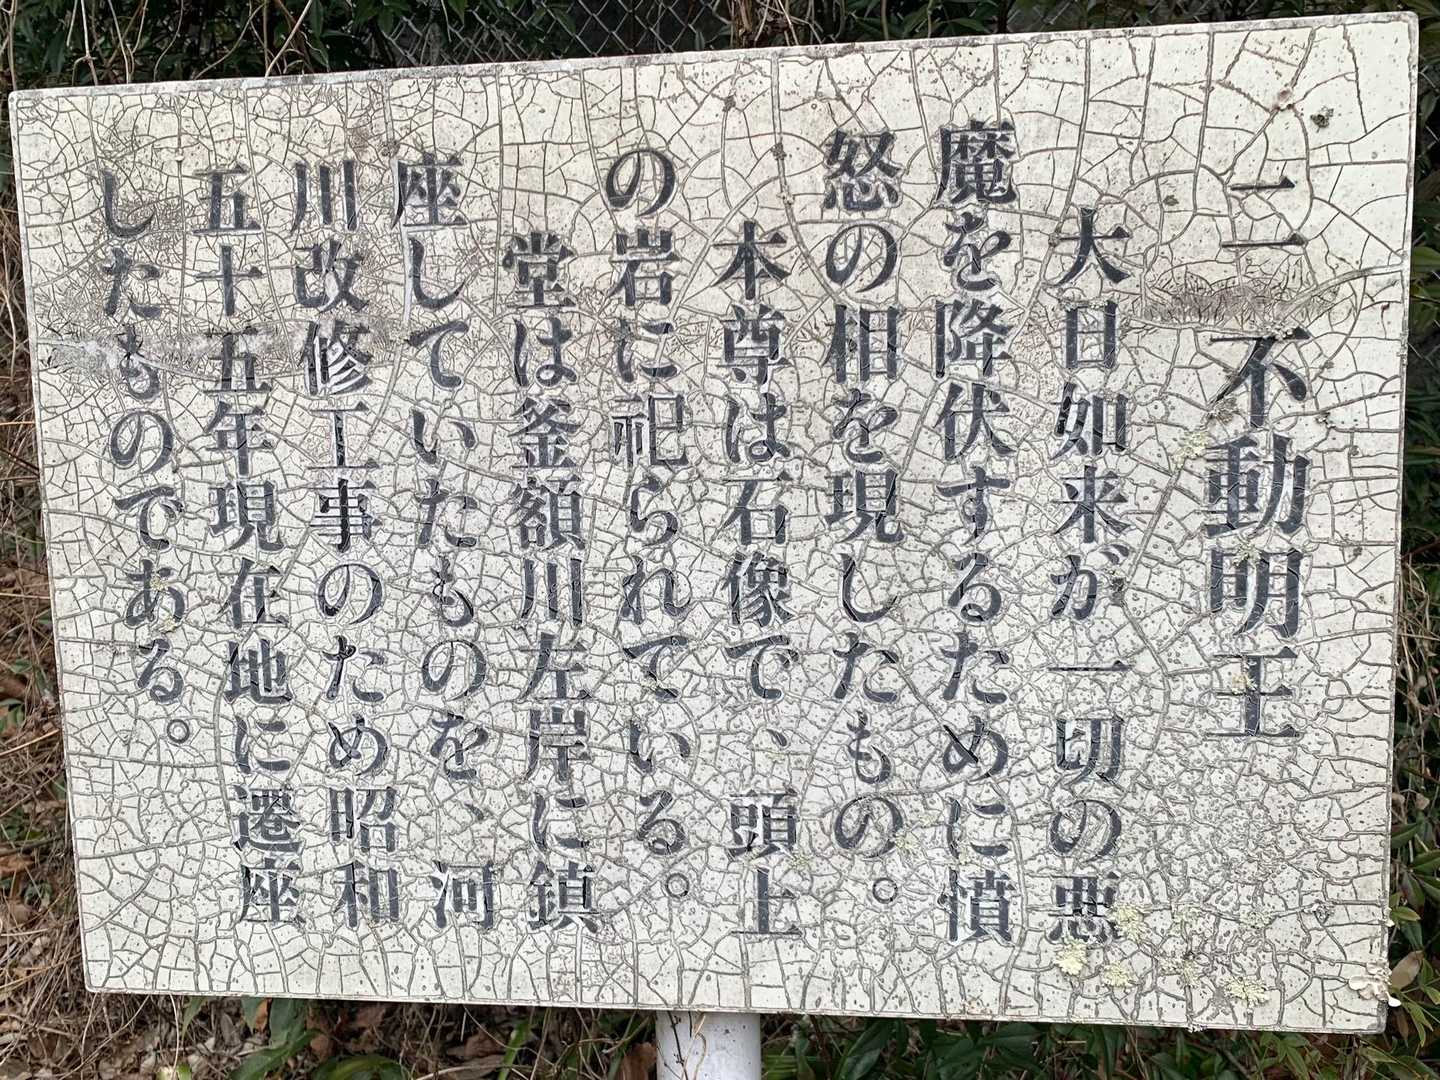 二 不動明王
大日如来が一切の悪
魔を降伏するために憤
怒の相を現したもの。
本尊は石像で、頭上
の岩に祀られている。
堂は釜額川左岸に鎮
座していたものを、河
川改修工事のため昭和
五十五年現在地に遷座
したものである。